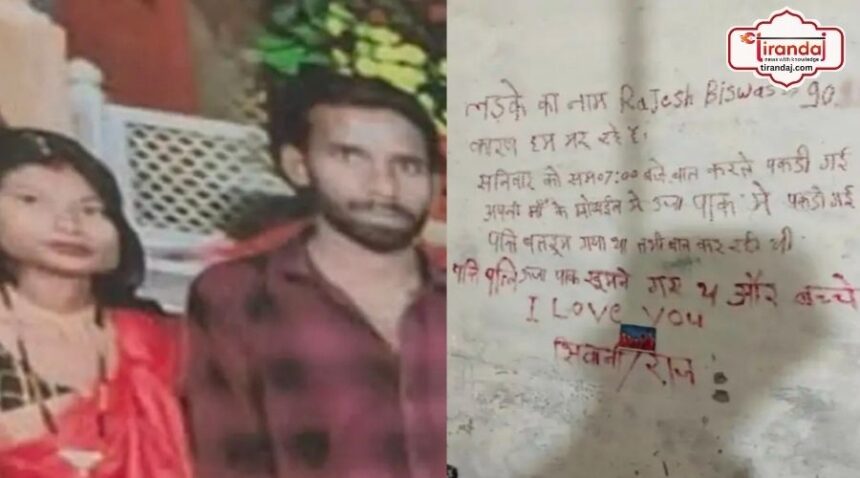 tirandaj
news with knowledge
tirandaj.com
लड़के का नाम Rajesh Biswas 90
कारण हम मर रहे है।
सनिवार को सम 07:00 बजे बात करते पकड़ी गई
अपनी माँ के मोबाईल में ऊर्जा पाक मे पकड़ी गई
पत्नि बातरूम गया था तभी बात कर रही थी
पति पत्नि ऊर्जा पाक घुमने गए थे और बच्चे
I Love you
शिवानी/राज